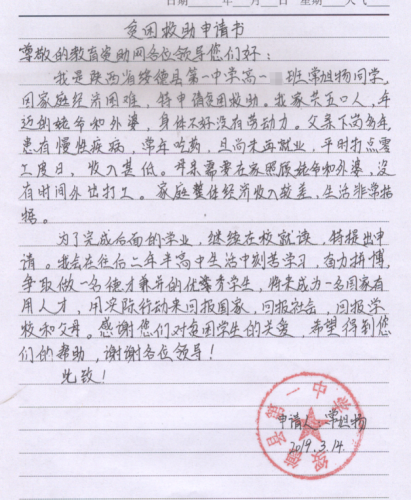 日期 年 月 日 星期 天气
贫困救助申请书
尊敬的教育资助网各位领导您们好:
我是陕西省绥德县第一中学高一 班常旭杨同学,
因家庭经济困难,特申请贫困救助。我家共五口人,年
近创爷和外婆,身体不好没有劳动力。父亲下岗多年,
患有慢性疾病,常年吃药,且尚未再就业,平时打点零
工度日,收入甚低。母亲需要在家照顾爷和外婆,没
有时间外出打工。家庭整体经济收入较差,生活非常拮
据。
为了完成后面的学业,继续在校就读,特提出申
请。我会在往后二年半高中生活中刻苦学习,奋力拼博,
争取做一名德才兼并的优秀学生,将来成为一名国家有
用人才,用实际行动来回报国家,回报社会,回报学
校和父母。感谢您们对贫困学生的关爱,希望得到您
们的帮助,谢谢各位领导!
此致!
绥德县第一中学
申请人:常旭杨
2019.3.14.